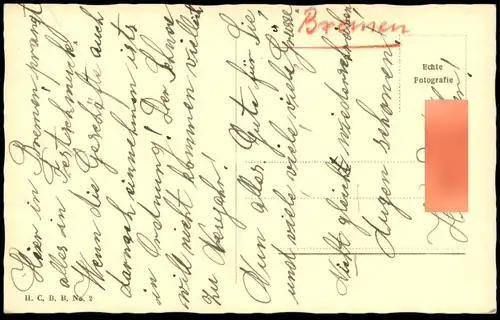 Bremen
Echte
Fotografie
Hier in Bremen prangt
alles in Festschmuck!
Wenn die Geschäfte auch
darnach einnehmen ists
in Ordnung! Der Schnee
will nicht kommen vielleicht
zu Neujahr!
Nun alles Gute für Sie
und viele, viele, viele Grüsse
Nicht gleich wieder schreiben
Augen schonen!
H. C. B. B. No. 2